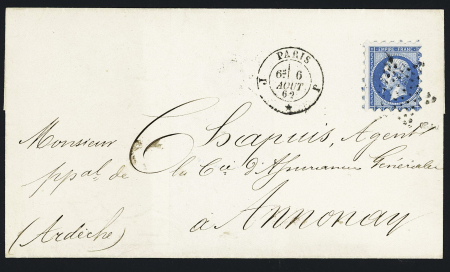 EMPIRE FRANC
PARIS
6E 6
AOUT
62
J J
Monsieur Chapuis, Agent
ppal de la Cie d'Assurances Générales
à Annonay
(Ardèche)